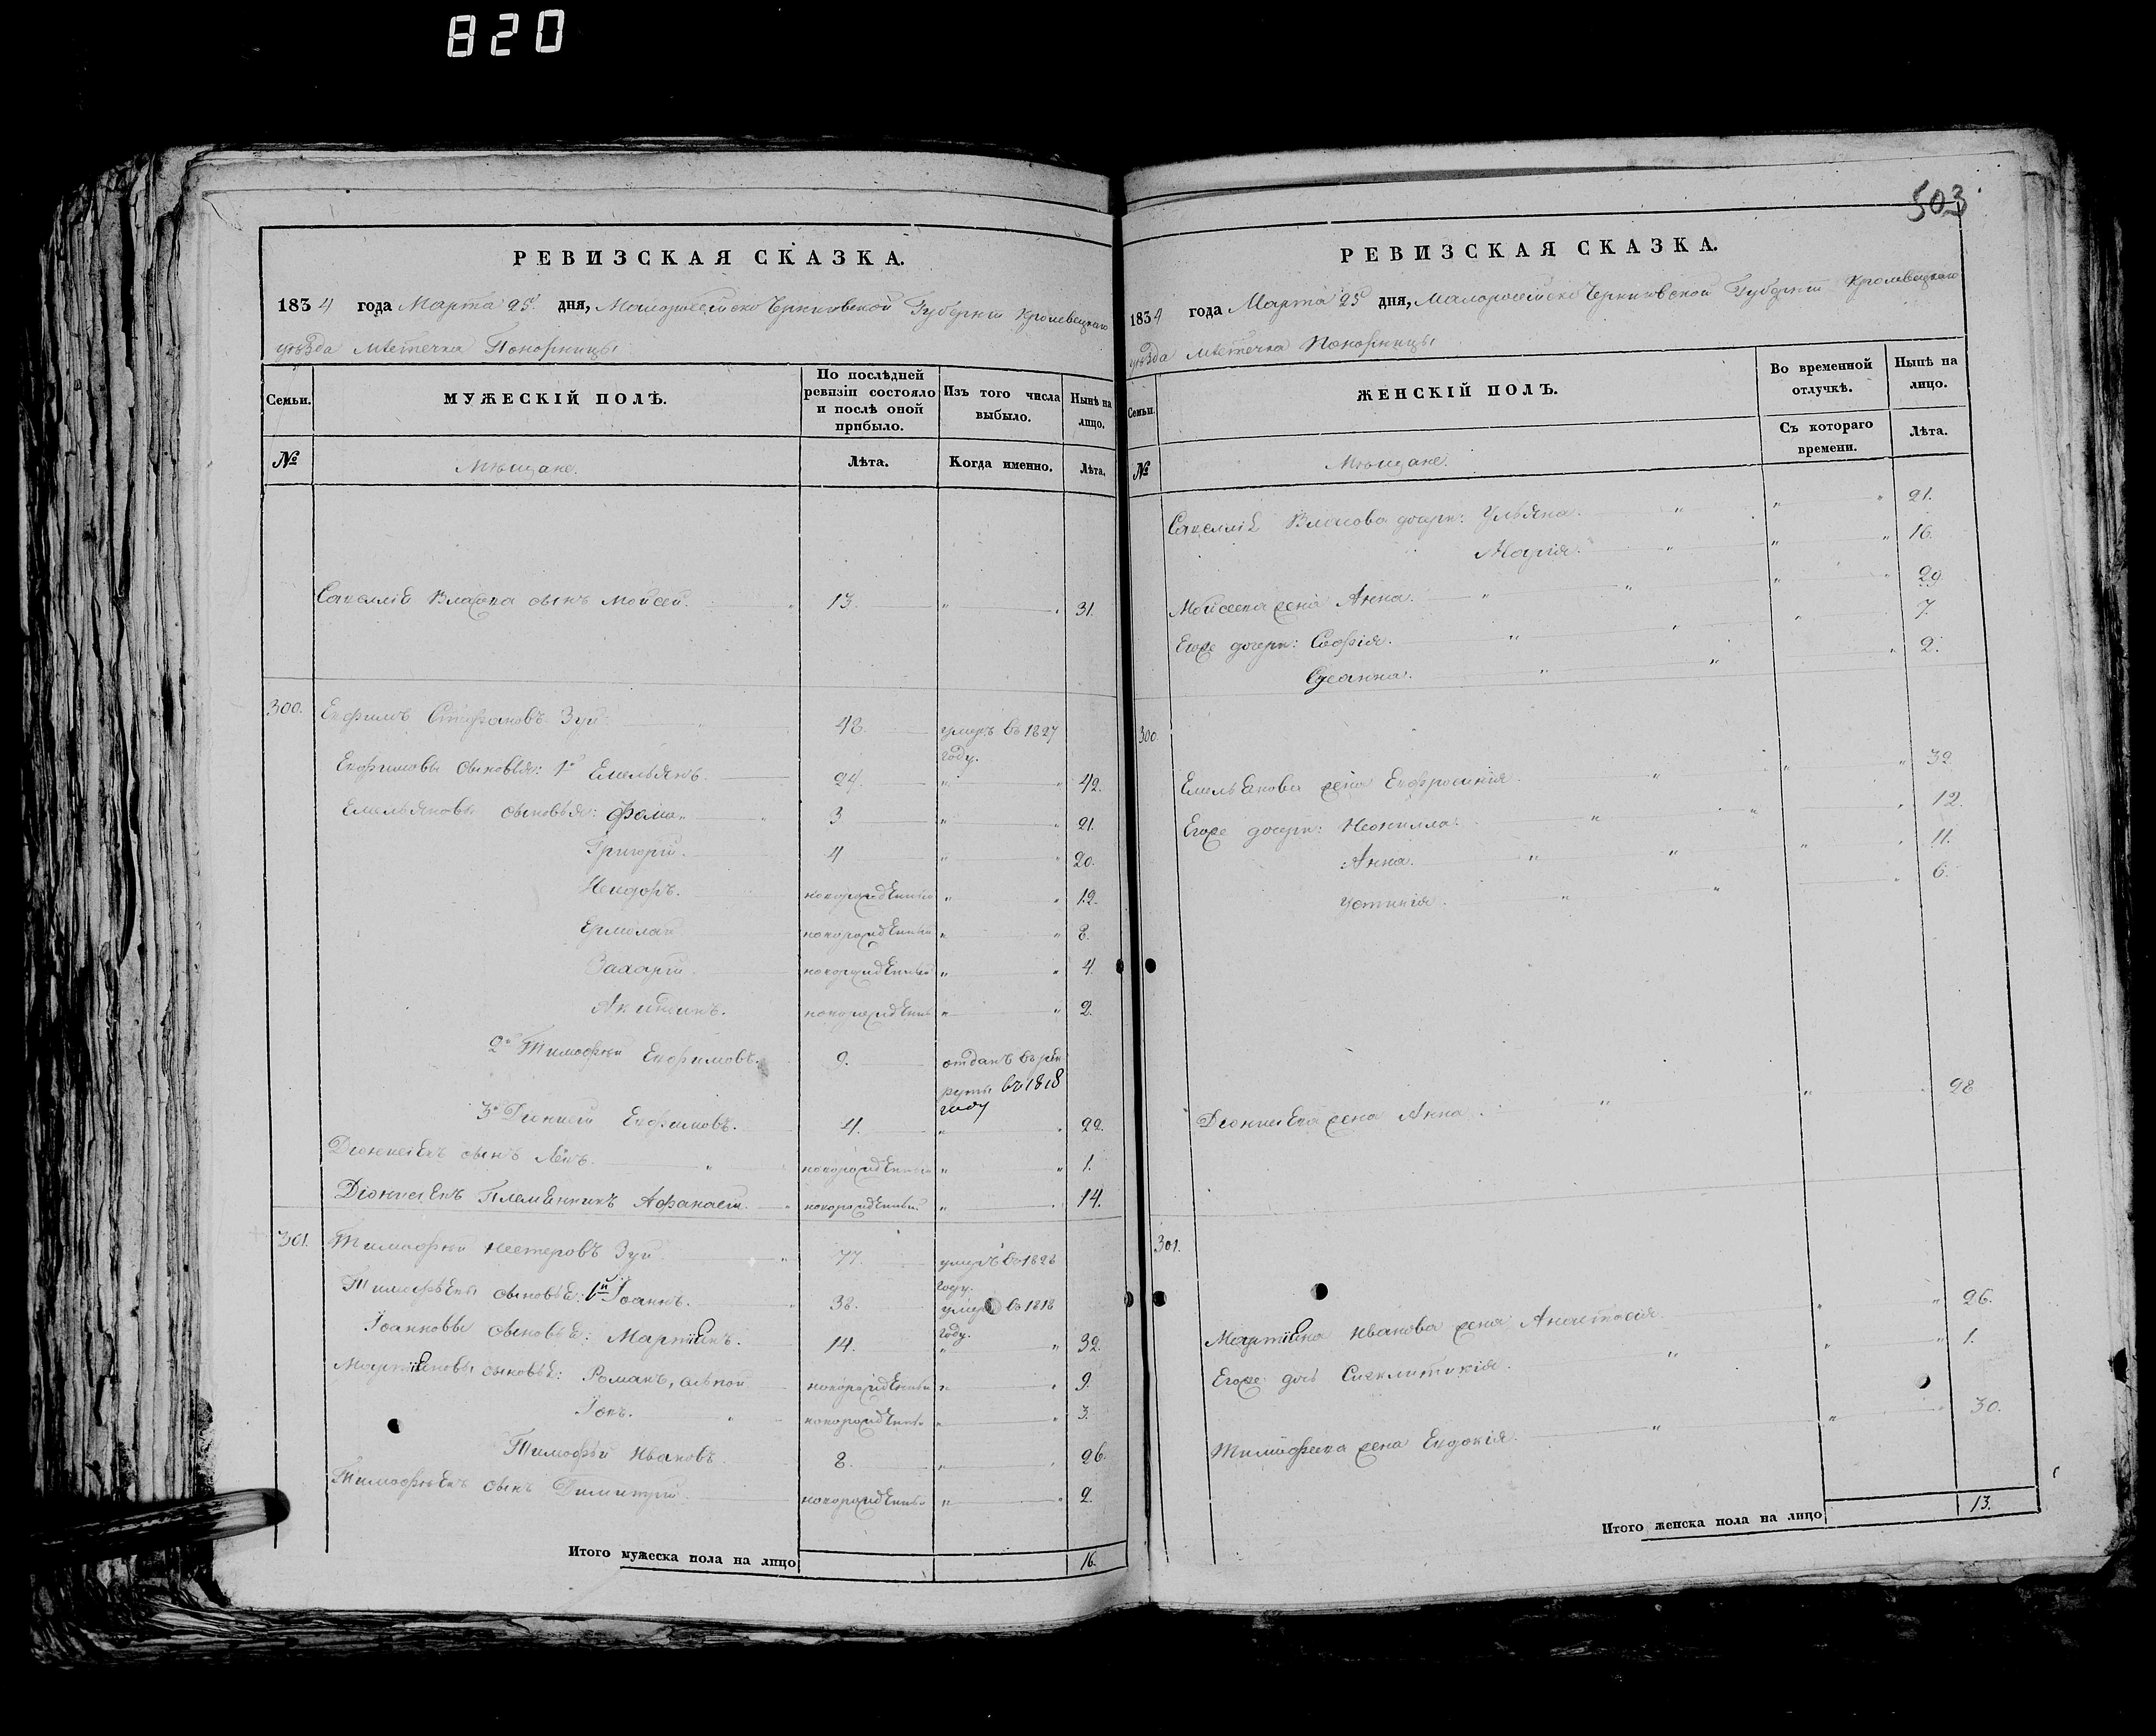 820
503
РЕВИЗСКАЯ СКАЗКА.
1834 года Марта 25 дня, Малоросейско Черниговской Губерніи Кролевецкаго
уѣзда Мѣстечка Понорницы
Семьи. МУЖЕСКІЙ ПОЛЪ. По послѣдней ревизіи состояло и послѣ оной прибыло. Изъ того числа выбыло. Нынѣ на лицо.
№ Мѣщане. Лѣта. Когда именно. Лѣта.
Власова сынъ Мойсей. 13. " " 31.
300. Евфимъ Стефановъ Зуй 48. умеръ въ 1827 году.
Евфимовы сыновья: 1й Емельянъ. 24. " " 42.
Емельяновы сыновья: Фома. 3 " " 21.
Григорій. 4 " " 20.
новорожденный " " 12.
Ермолай новорожденный " " 8.
Захарій новорожденный " " 4.
новорожденный " " 2.
2й Тимофей Евфимовъ. 9. отданъ въ рекруты въ 1818 году
3й Евфимовъ. 4. " " 22.
Діонисіевъ сынъ новорожденный " " 1.
Діонисіевъ Племянникъ Афанасій. новорожденный " " 14.
301. Тимофей Нестеровъ Зуй 77. умеръ въ 1826 году.
Тимофѣевы сыновья: 1й Іоаннъ. 38. умеръ въ 1818 году.
Іоанновы сыновья: 14. " " 32.
сыновья: Романъ, слѣпой новорожденный " " 9.
новорожденный " " 3.
Тимофей Ивановъ 8. " " 26.
Тимофѣевъ сынъ Димитрій новорожденный " " 2.
Итого мужеска пола на лицо 16.
РЕВИЗСКАЯ СКАЗКА.
1834 года Марта 25 дня, Малоросейско Черниговской Губерніи Кролевецкаго
уѣзда Мѣстечка Понорницы
Семьи. ЖЕНСКІЙ ПОЛЪ. Во временной отлучкѣ. Нынѣ на лицо.
№ Мѣщане. Съ котораго времени. Лѣта.
Власова дочери: Ульяна. " " 21.
Марія. " " 16.
Мойсеева жена Анна. " " 29.
Егоже дочери: Софія. " " 7.
2.
300.
Емельянова жена Евфросинія " " 32
Егоже дочери: Неонилла. " " 12.
Анна. " " 11.
Устинія " " 6.
Діонисіева жена Анна. " " 28
301.
Иванова жена Анастасія " " 26.
Егоже дочь Синклитикія " " 1.
Тимофеева жена Евдокія " " 30.
Итого женска пола на лицо 13.